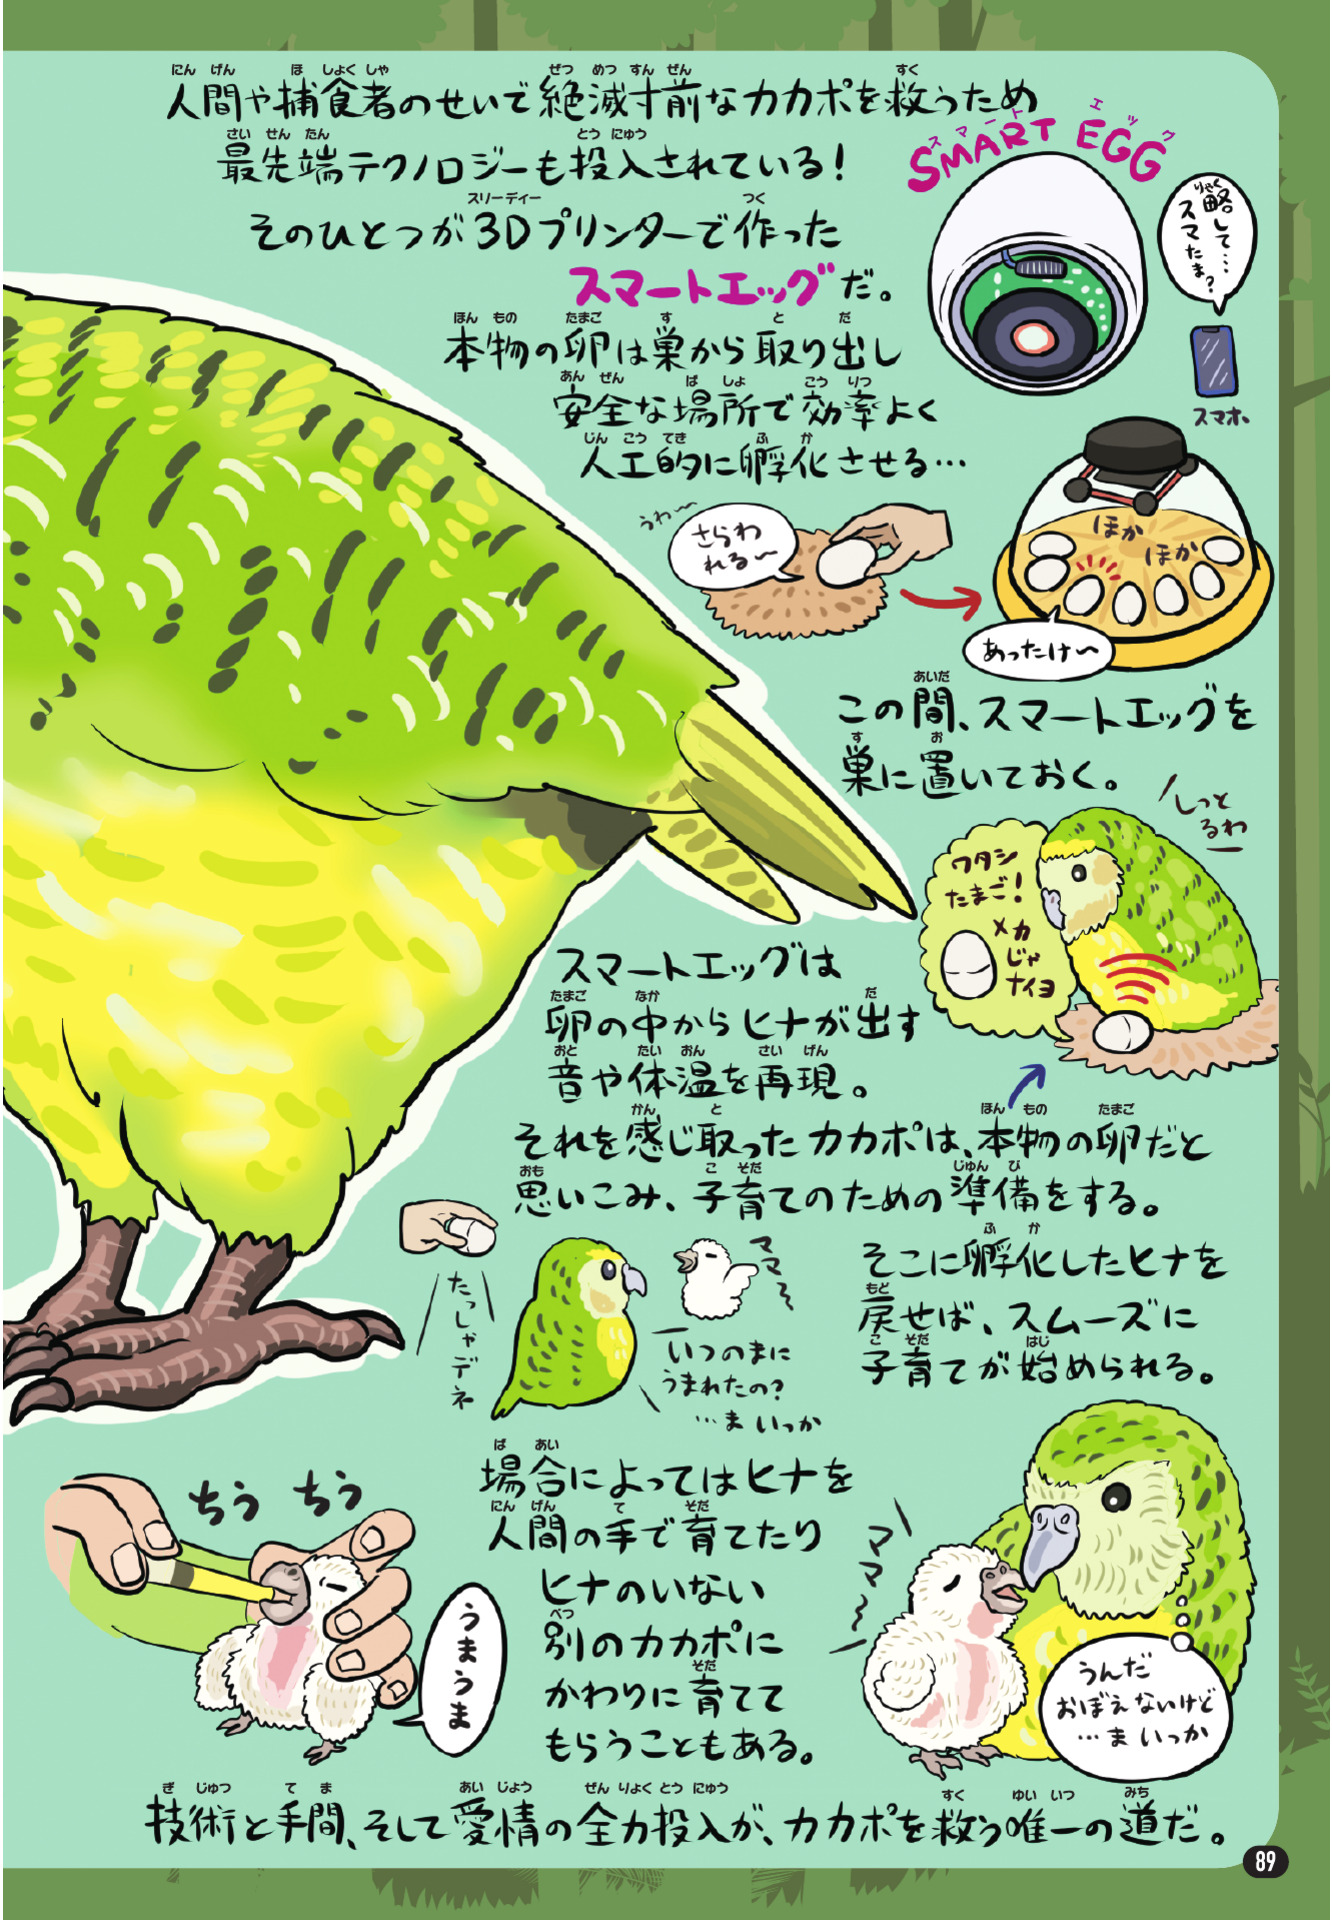 人間や捕食者のせいで絶滅寸前なカカポを救うため
最先端テクノロジーも投入されている!
そのひとつが3Dプリンターで作った
スマートエッグだ。
SMART EGG
スマート エッグ
略して…
スマたま?
スマホ
本物の卵は巣から取り出し
安全な場所で効率よく
人工的に孵化させる…
うわ〜
さらわ
れる〜
ほか
ほか
あったけ〜
この間、スマートエッグを
巣に置いておく。
しっと
るわ
ワタシ
たまご!
メカ
じゃ
ナイヨ
スマートエッグは
卵の中からヒナが出す
音や体温を再現。
それを感じ取ったカカポは、本物の卵だと
思いこみ、子育てのための準備をする。
そこに孵化したヒナを
戻せば、スムーズに
子育てが始められる。
たっしゃデネ
ママ〜
いつのまに
うまれたの?
…ま いっか
場合によってはヒナを
人間の手で育てたり
ヒナのいない
別のカカポに
かわりに育てて
もらうこともある。
ちう ちう
うまうま
ママ〜
うんだ
おぼえないけど
…ま いっか
技術と手間、そして愛情の全力投入が、カカポを救う唯一の道だ。
89